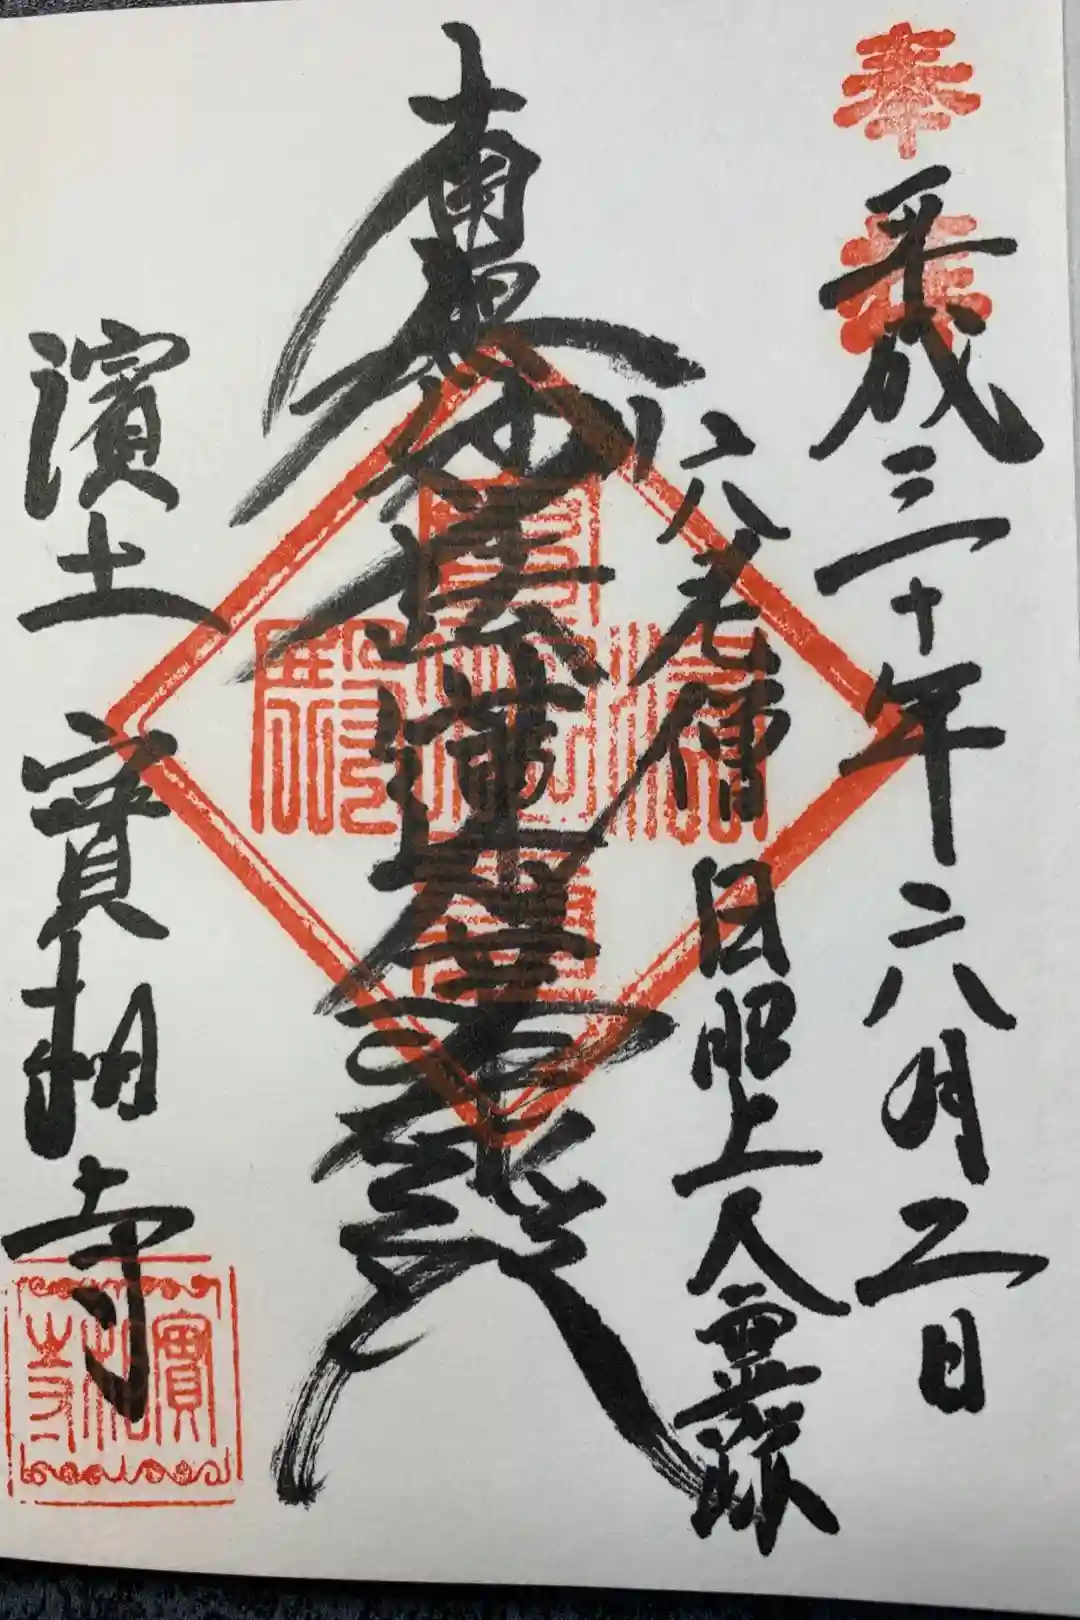 奉拝
平成三十年六月二日
六老僧 日昭上人霊跡
南無妙法蓮華経
濱土 實相寺
實相寺